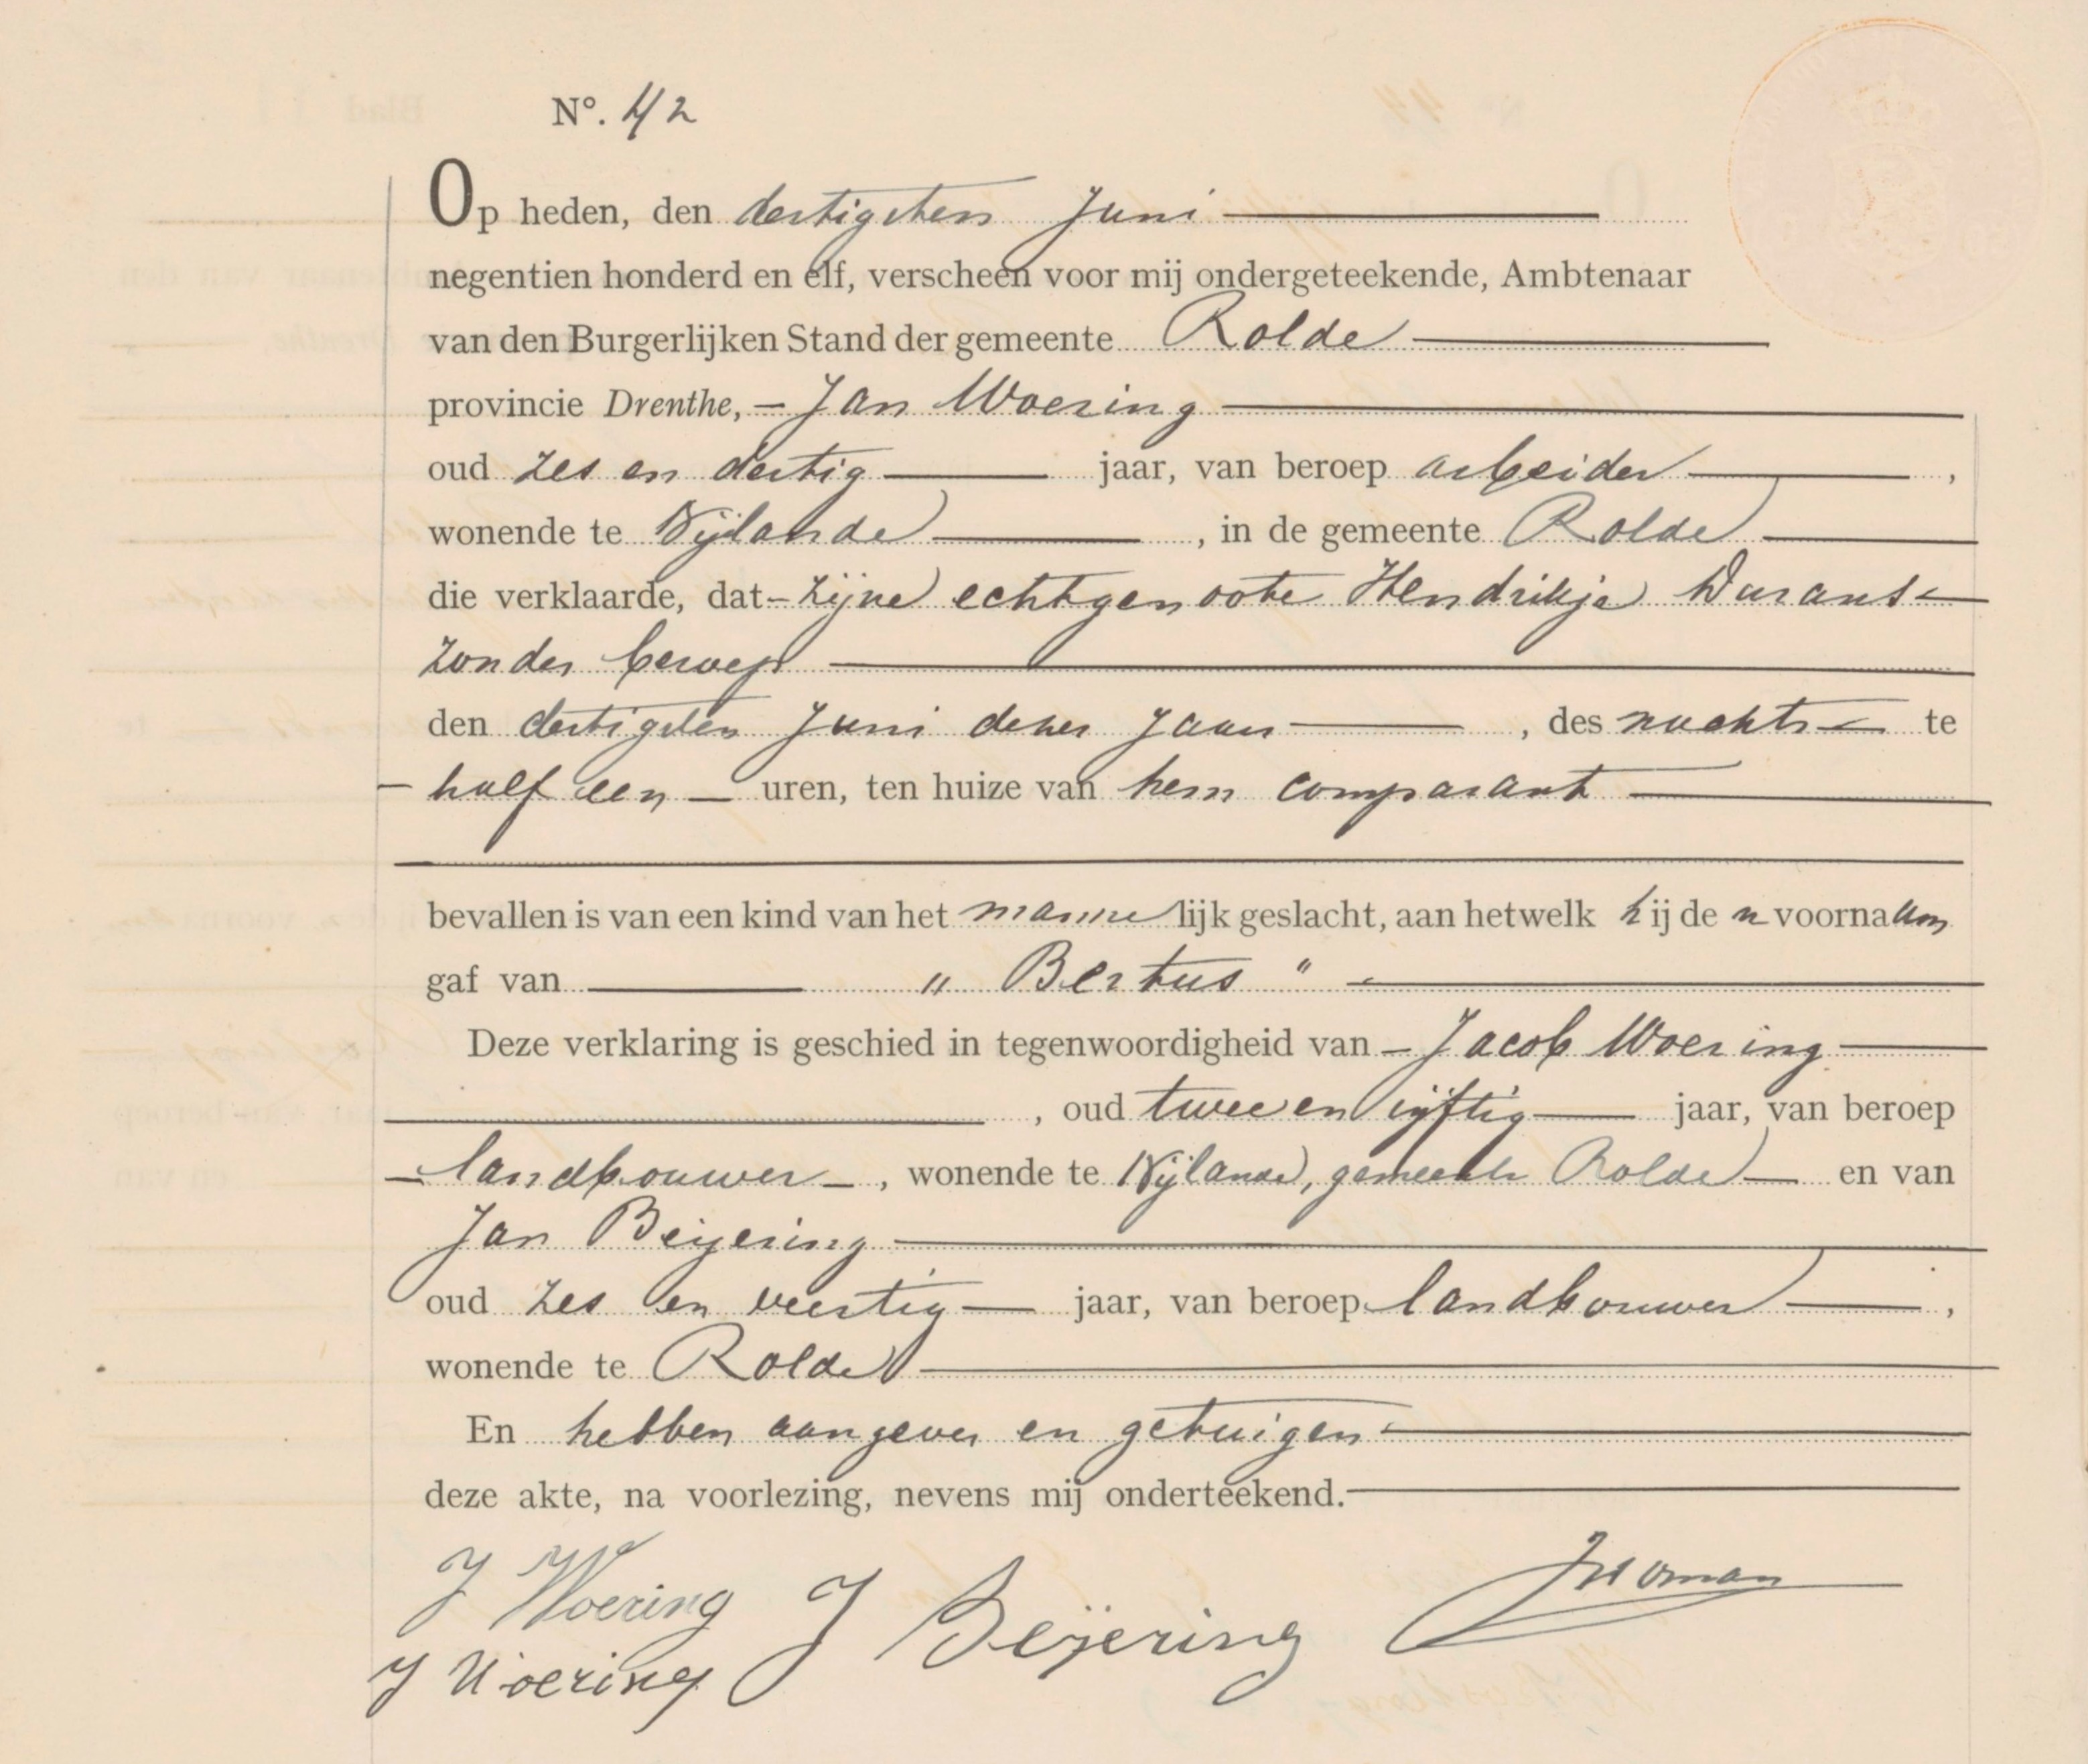 N°. 42
Op heden, den dertigsten Juni
negentien honderd en elf, verscheen voor mij ondergeteekende, Ambtenaar
van den Burgerlijken Stand der gemeente Rolde
provincie Drenthe, Jan Woering
oud zes en dertig jaar, van beroep arbeider,
wonende te Nijlande, in de gemeente Rolde
die verklaarde, dat zijne echtgenoote Hendrikje
zonder beroep
den dertigsten Juni dezes jaars, des nachts te
half een uren, ten huize van hem comparant
bevallen is van een kind van het mannelijk geslacht, aan hetwelk hij de n voornaam
gaf van "Bertus"
Deze verklaring is geschied in tegenwoordigheid van Jacob Woering
, oud twee en vijftig jaar, van beroep
landbouwer, wonende te Nijlande, gemeente Rolde en van
Jan Beijering
oud zes en veertig jaar, van beroep landbouwer,
wonende te Rolde
En hebben aangever en getuigen
deze akte, na voorlezing, nevens mij onderteekend.
J Woering J Beijering
J Woering